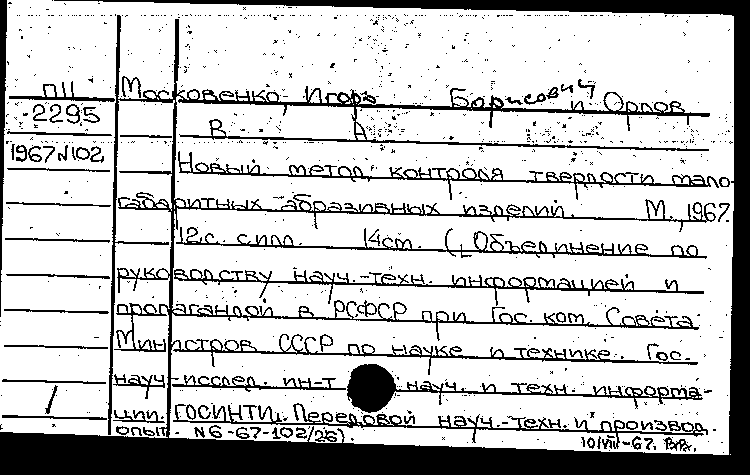 П11 Московенко, Игорь Борисович и Орлов,
2295 В. А.
1967 N102 Новый метод контроля твердости мало-
габаритных абразивных изделий. М., 1967.
12 с. с илл. 14 см. (Объединение по
руководству науч.-техн. информацией и
пропагандой в РСФСР при Гос. ком. Совета
Министров СССР по науке и технике. Гос.
науч.-исслед. ин-т науч. и техн. информа-
ции. ГОСИНТИ. Передовой науч.-техн. и производ.
опыт. N 6-67-102/26).
10/VIII-67.